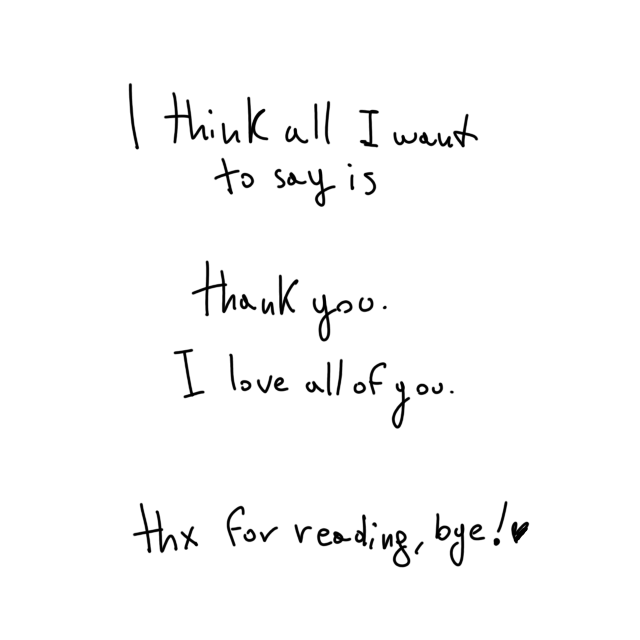 I think all I want
to say is
thank you.
I love all of you.
thx for reading, bye!♥